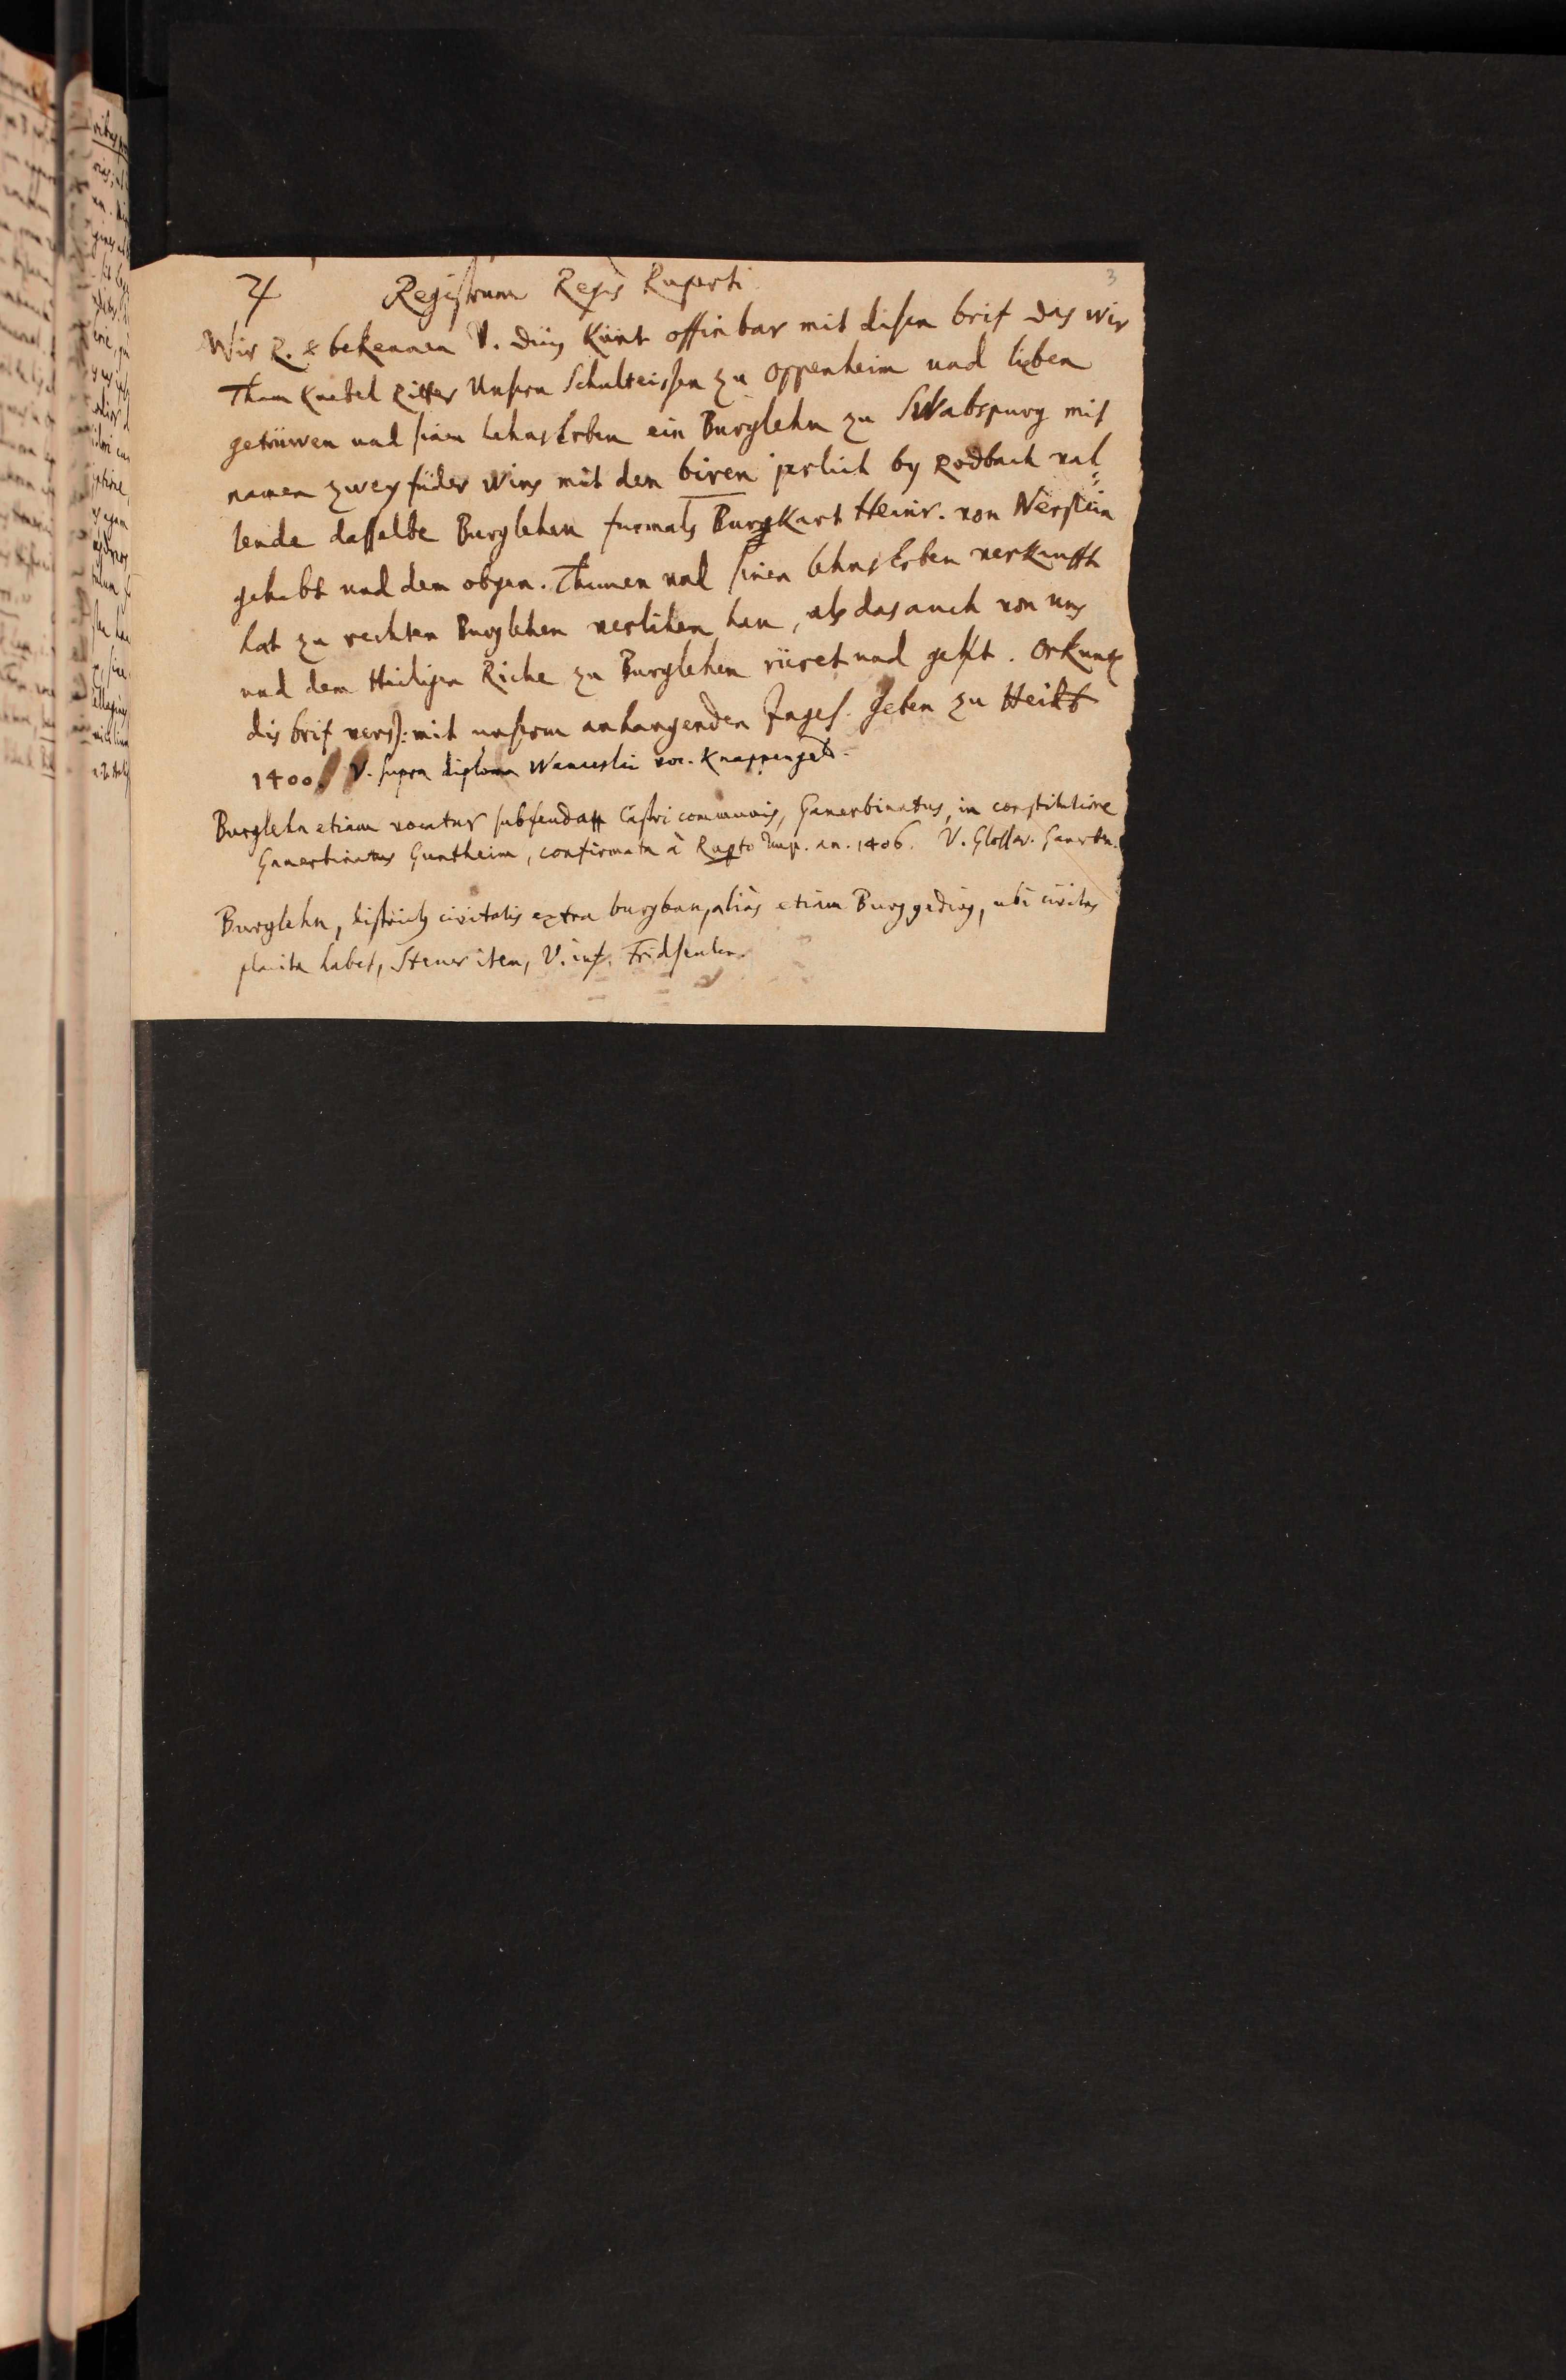 3
Registrum Regis Ruperti
Wir R. & bekennen V. dūn Kunt offinbar mit disen brif das wir
Tham Knebel Ritter Unsern Schulteissen zu Oppenheim und lieben
getruwen und sinen LehnsErben ein Burglehn zu SWabspurg mit
namen zwey fuder wins mit den biren jerlich by Rodbach val=
lende dasselbe Burglehen furmals BurgKart Heinr. von Nerstein
gehebt und dem obgen. Thamen und sinen lehnsErben verKaufft
hat zu rechten Burglehen verlihen han, als das auch von uns
und dem Heiligen Riche zu Burglehen rüret und geht. OrKund
dis brif vers: mit unserm anhangenden Inges. Geben zu Heidt
1400. V. supra diploma Wenceslai voc. Knappengelt.
Burglehn etiam vocatur Castri communis, Ganerbinatus, in constitutione
Ganerbinatus Guntheim, confirmata à Rupto Imp. an. 1406. V. Glossar. Ganerbn.
Burglehn, districts civitatis extra burgban, aliàs etiam Burggeding, ubi civitas
placita habet, Steuer item, V. inf. Fridseulen.